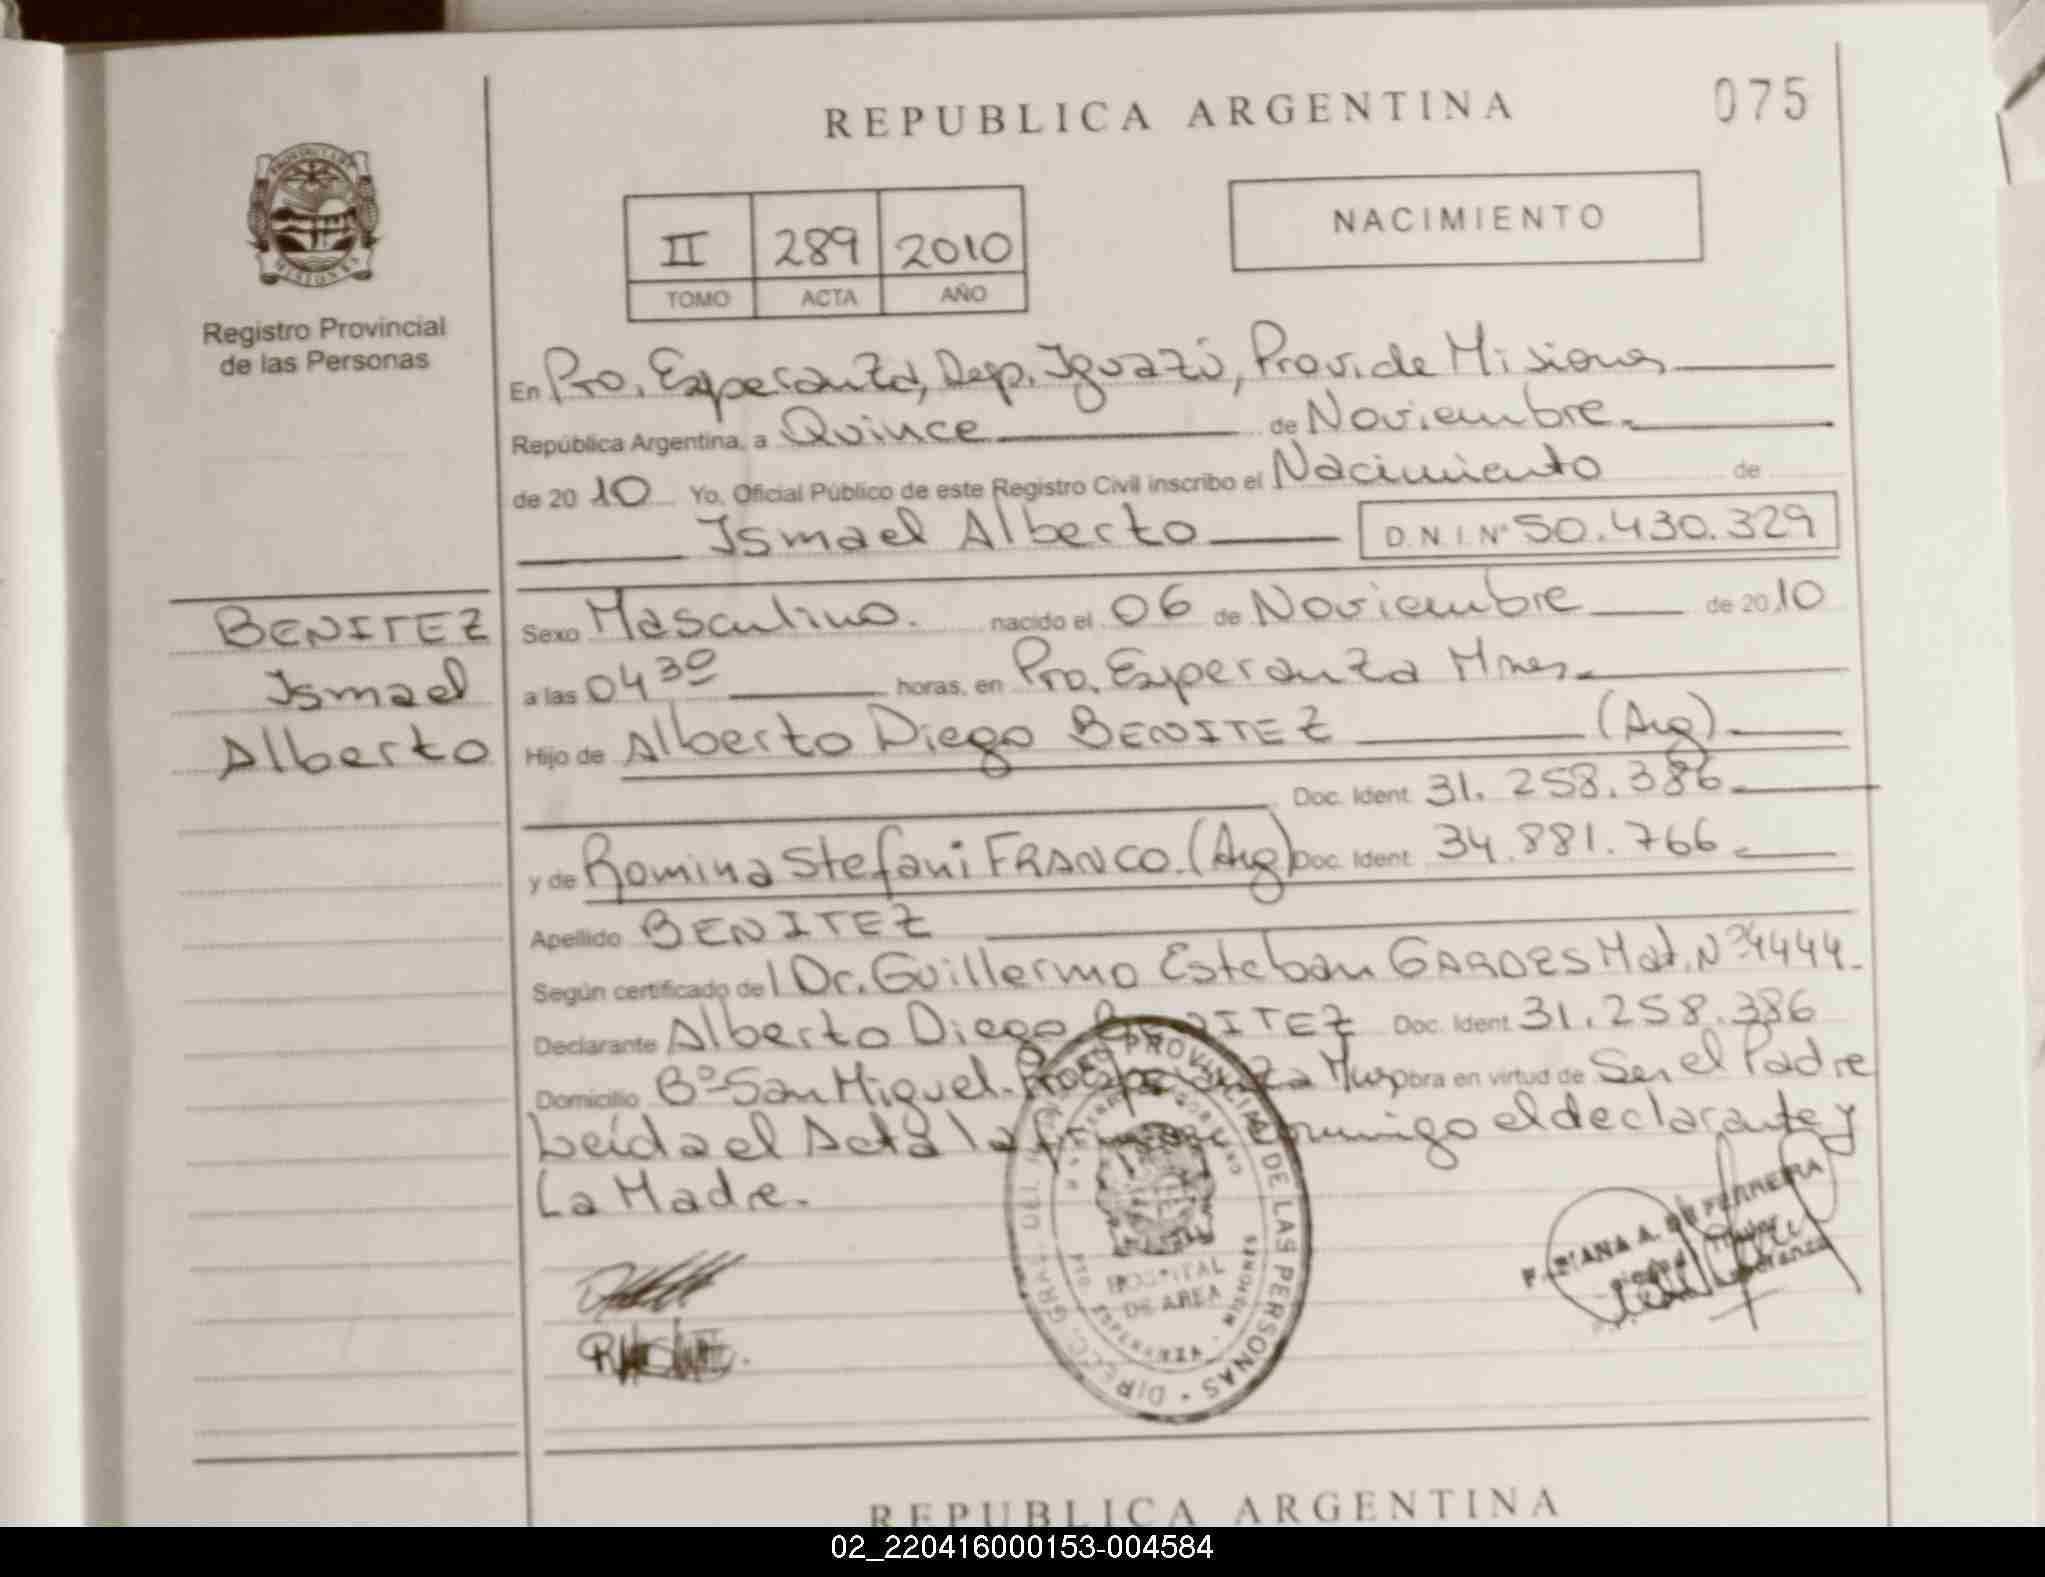 REPUBLICA ARGENTINA
075
PROVINCIA
MISIONES
Registro Provincial
de las Personas
II 289 2010
TOMO ACTA AÑO
NACIMIENTO
En Pto. Esperanza, Dep. Iguazú, Prov. de Misiones
República Argentina, a Quince de Noviembre.
de 2010 Yo, Oficial Público de este Registro Civil inscribo el Nacimiento de
Ismael Alberto D.N.I. Nº 50.430.329
BENITEZ
Ismael
Alberto
Sexo Masculino. nacido el 06 de Noviembre de 2010
a las 04 30 horas, en Pto. Esperanza Mnes.
Hijo de Alberto Diego BENITEZ (Arg).
Doc. Ident. 31.258.386
y de Romina Stefani FRANCO. (Arg) Doc. Ident. 34.881.766
Apellido BENITEZ
Según certificado del Dr. Guillermo Esteban Mat. Nº 4444.
Declarante Alberto Diego BENITEZ Doc. Ident. 31.258.386
Domicilio Bº San Miguel. Pto Esperanza Mnes Obra en virtud de Ser el Padre
Leída el Acta la firman conmigo el declarante y
La Madre.
DIRECC. GRAL. DEL REGISTRO PROVINCIAL DE LAS PERSONAS
HOSPITAL
DE AREA
PTO. ESPERANZA - MISIONES
A. DE FERREIRA
REPUBLICA ARGENTINA
02_220416000153-004584